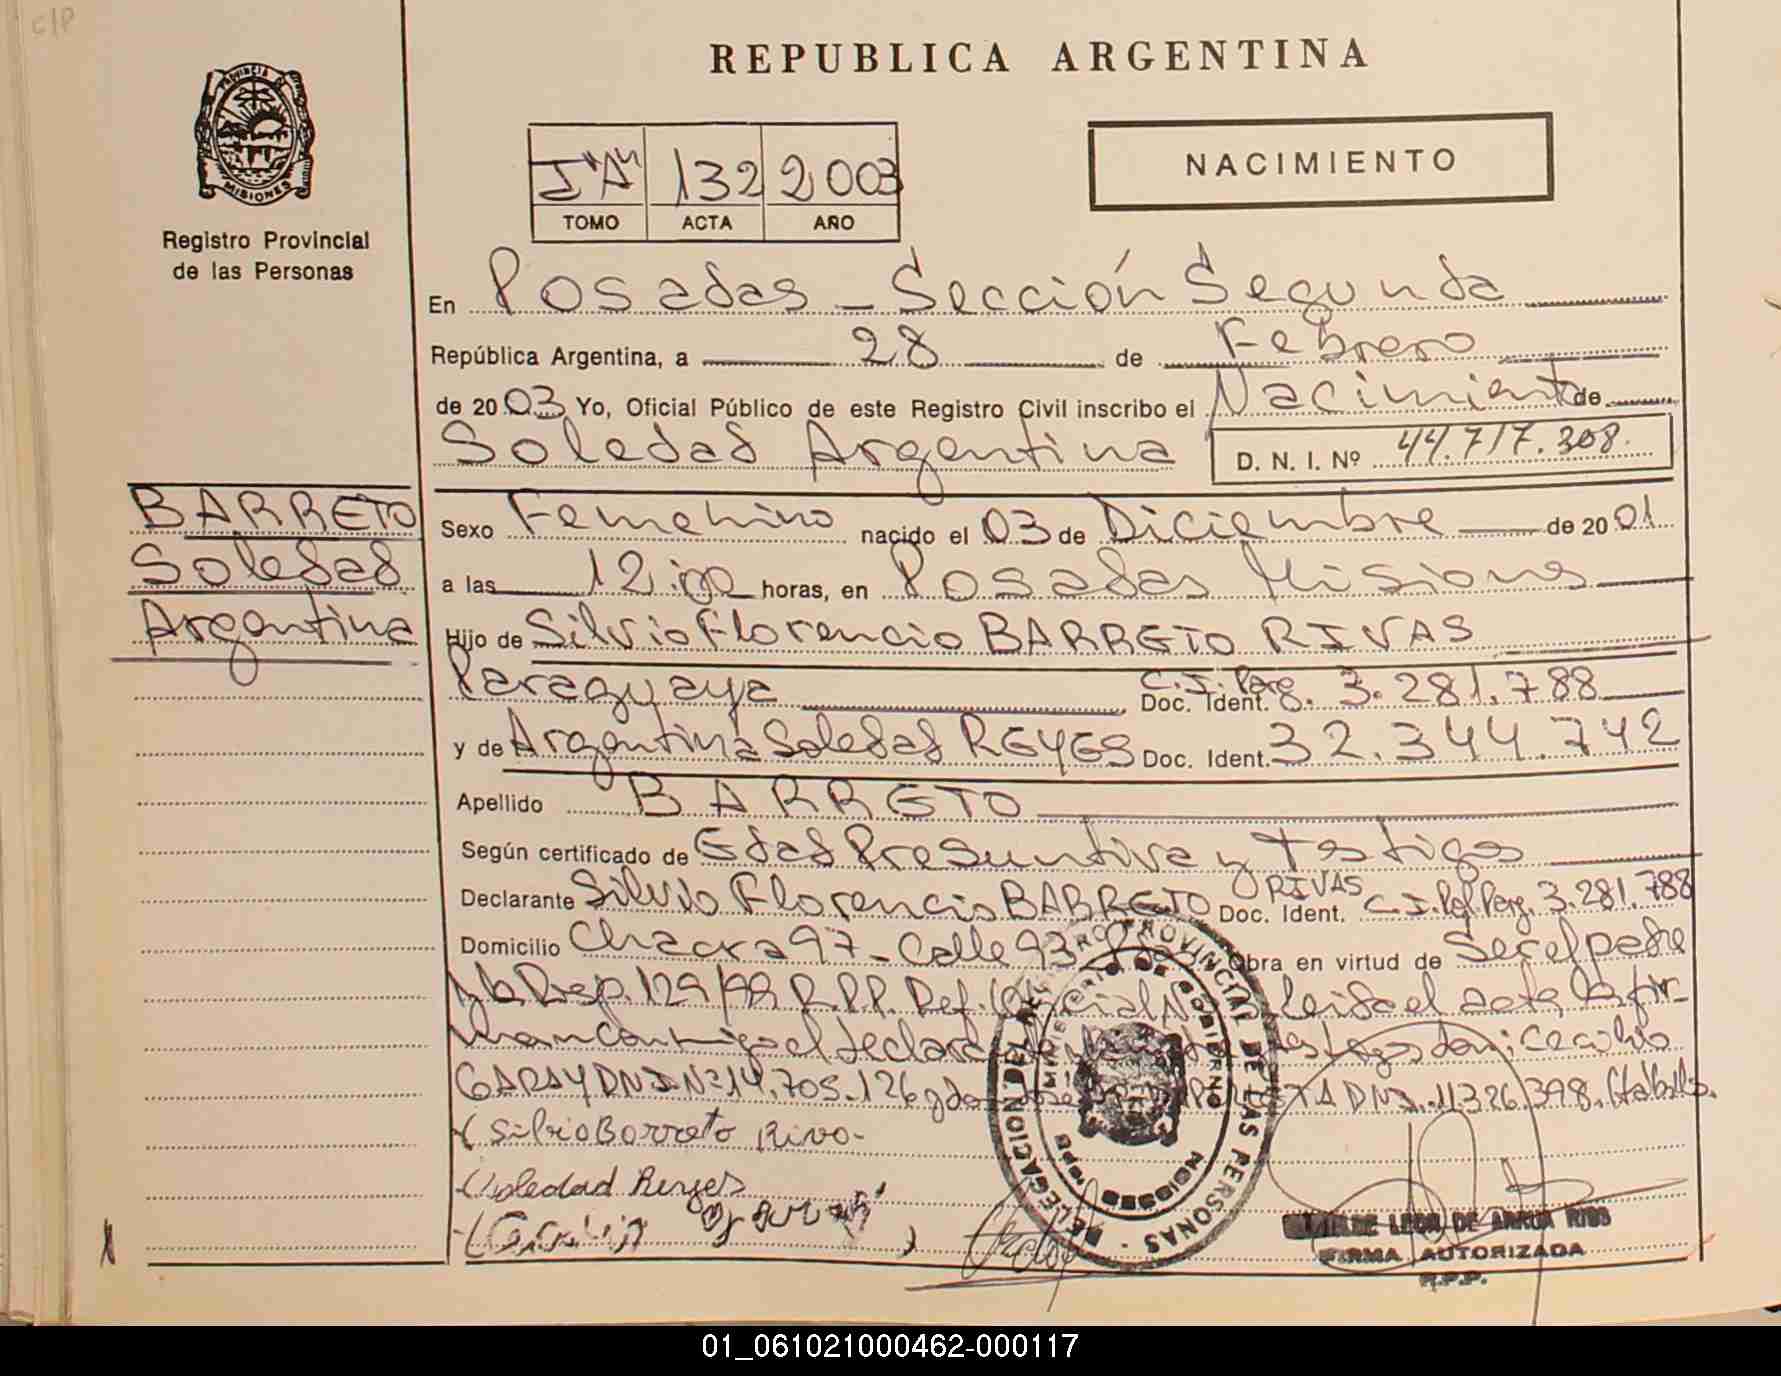 c/P
PROVINCIA DE
MISIONES
Registro Provincial
de las Personas
REPUBLICA ARGENTINA
I"A" 132 2003
TOMO ACTA AÑO
NACIMIENTO
En Posadas - Sección Segunda
República Argentina, a 28 de Febrero
de 2003 Yo, Oficial Público de este Registro Civil inscribo el Nacimiento de
Soledad Argentina D. N. I. Nº 44.717.308.
BARRETO
Soledad
Argentina
Sexo Femenino nacido el 03 de Diciembre de 2001
a las 12:00 horas, en Posadas Misiones
Hijo de Silvio Florencio BARRETO RIVAS
Paraguaya Doc. Ident. C.I. Parg. 3.281.788
y de Argentina Soledad REYES Doc. Ident. 32.344.742
Apellido BARRETO
Según certificado de Edad Presuntiva y Testigos
Declarante Silvio Florencio BARRETO RIVAS Doc. Ident. C.I. Pol Parg. 3.281.788
Domicilio Chacra 97 - Calle 93 Obra en virtud de Ser el padre
Disp. 129/99 R.P.P. Leida el acta la fir-
man conmigo el declarante testigos don: Cecilio
GARAY DNI Nº 14.705.126 y don José DNI. 11.326.398.
Silvio Barreto Riva-
Soledad Reyes
DELEGACION DEL REGISTRO PROVINCIAL DE LAS PERSONAS
MINISTERIO DE GOBIERNO
MISIONES
LEON DE ARRUA RIOS
FIRMA AUTORIZADA
R.P.P.
01_061021000462-000117